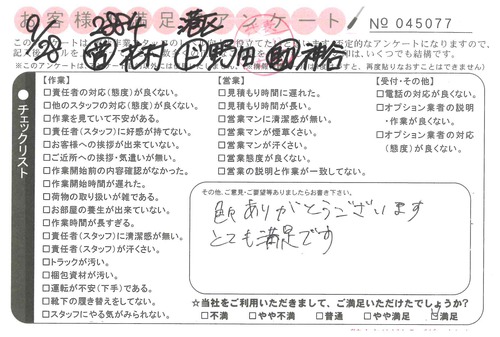 お客様満足アンケート
№ 045077
9/28 2884 港区
チェックリスト
【作業】
□責任者の対応(態度)が良くない。
□他のスタッフの対応(態度)が良くない。
□作業を見ていて不安がある。
□責任者(スタッフ)に好感が持てない。
□お客様への挨拶が出来ていない。
□ご近所への挨拶・気遣いが無い。
□作業開始前の内容確認がなかった。
□作業開始時間が遅れた。
□荷物の取り扱いが雑である。
□お部屋の養生が出来ていない。
□作業時間が長すぎる。
□責任者(スタッフ)に清潔感が無い。
□責任者(スタッフ)が汗くさい。
□トラックが汚い。
□梱包資材が汚い。
□運転が不安(下手)である。
□靴下の履き替えをしてない。
□スタッフにやる気がみられない。
【営業】
□見積もり時間に遅れた。
□見積もり時間が長い。
□営業マンに清潔感が無い。
□営業マンが煙草くさい。
□営業マンが汗くさい。
□営業態度が良くない。
□営業の説明と作業が一致してない。
【受付・その他】
□電話の対応が良くない。
□オプション業者の説明
・作業が良くない。
□オプション業者の対応
(態度)が良くない。
その他、ご意見・ご要望等ありましたらお書き下さい。
ありがとうございます
とても満足です
☆当社をご利用いただきまして、ご満足いただけたでしょうか?
□不満 □やや不満 □普通 □やや満足 □満足